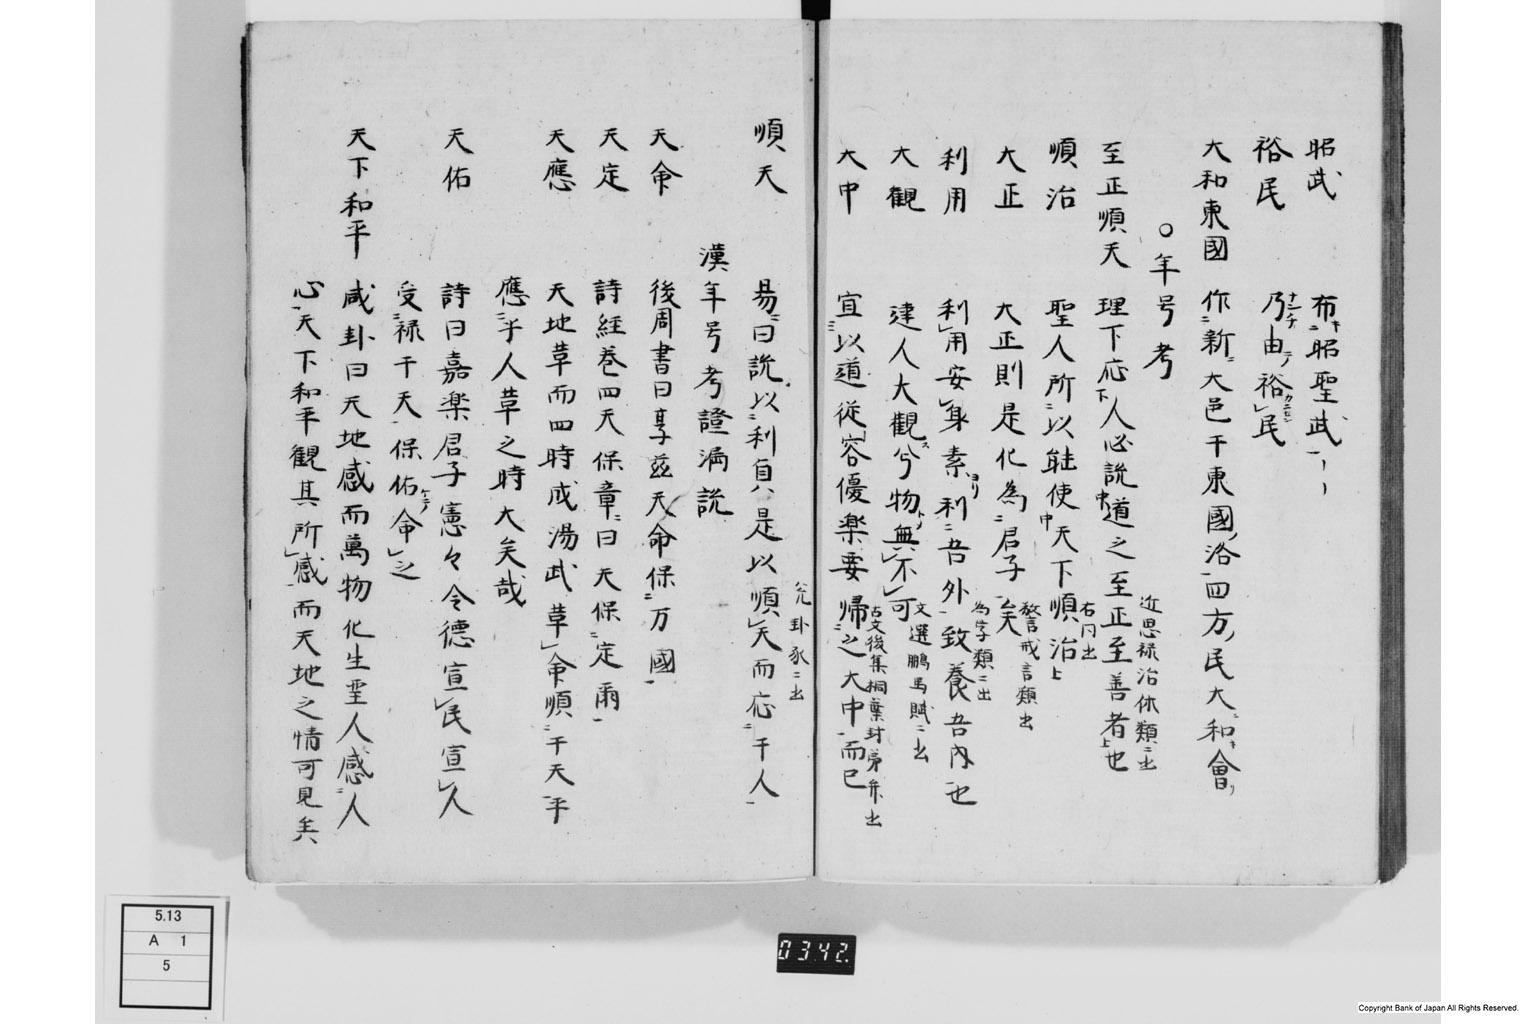 昭武　布昭聖武
裕民　乃由裕民
大和東國　作新大邑于東國洛四方民大和會
〇年号考
至正順天　理下応人必説道之至正至善者也 近思録治体類ニ出
順治　聖人所以能使天下順治 右同出
大正　大正則是化為君子矣 警戒言類出
利用　利用安身素利吾外致養吾内也 為学類ニ出
大觀　達人大觀兮物無不可 文選鵬鳥賦ニ出
大中　宜以道從容優楽要帰之大中而已 古文後集桐葉封弟弁出
順天　易曰説以利貞是以順天而応于人 兌卦彖ニ出
漢年号考證漏説
天命　後周書曰享茲天命保万國
天定　詩経巻四天保章曰天保定爾
天應　天地革而四時成湯武革命順于天乎
應乎人革之時大矣哉
天佑　詩曰嘉楽君子憲々令德宣民宣人
受禄于天保佑命之
天下和平　咸卦曰天地感而萬物化生聖人感人
心天下和平観其所感而天地之情可見矣
5.13
A 1
5
0342
Copyright Bank of Japan All Rights Reserved.